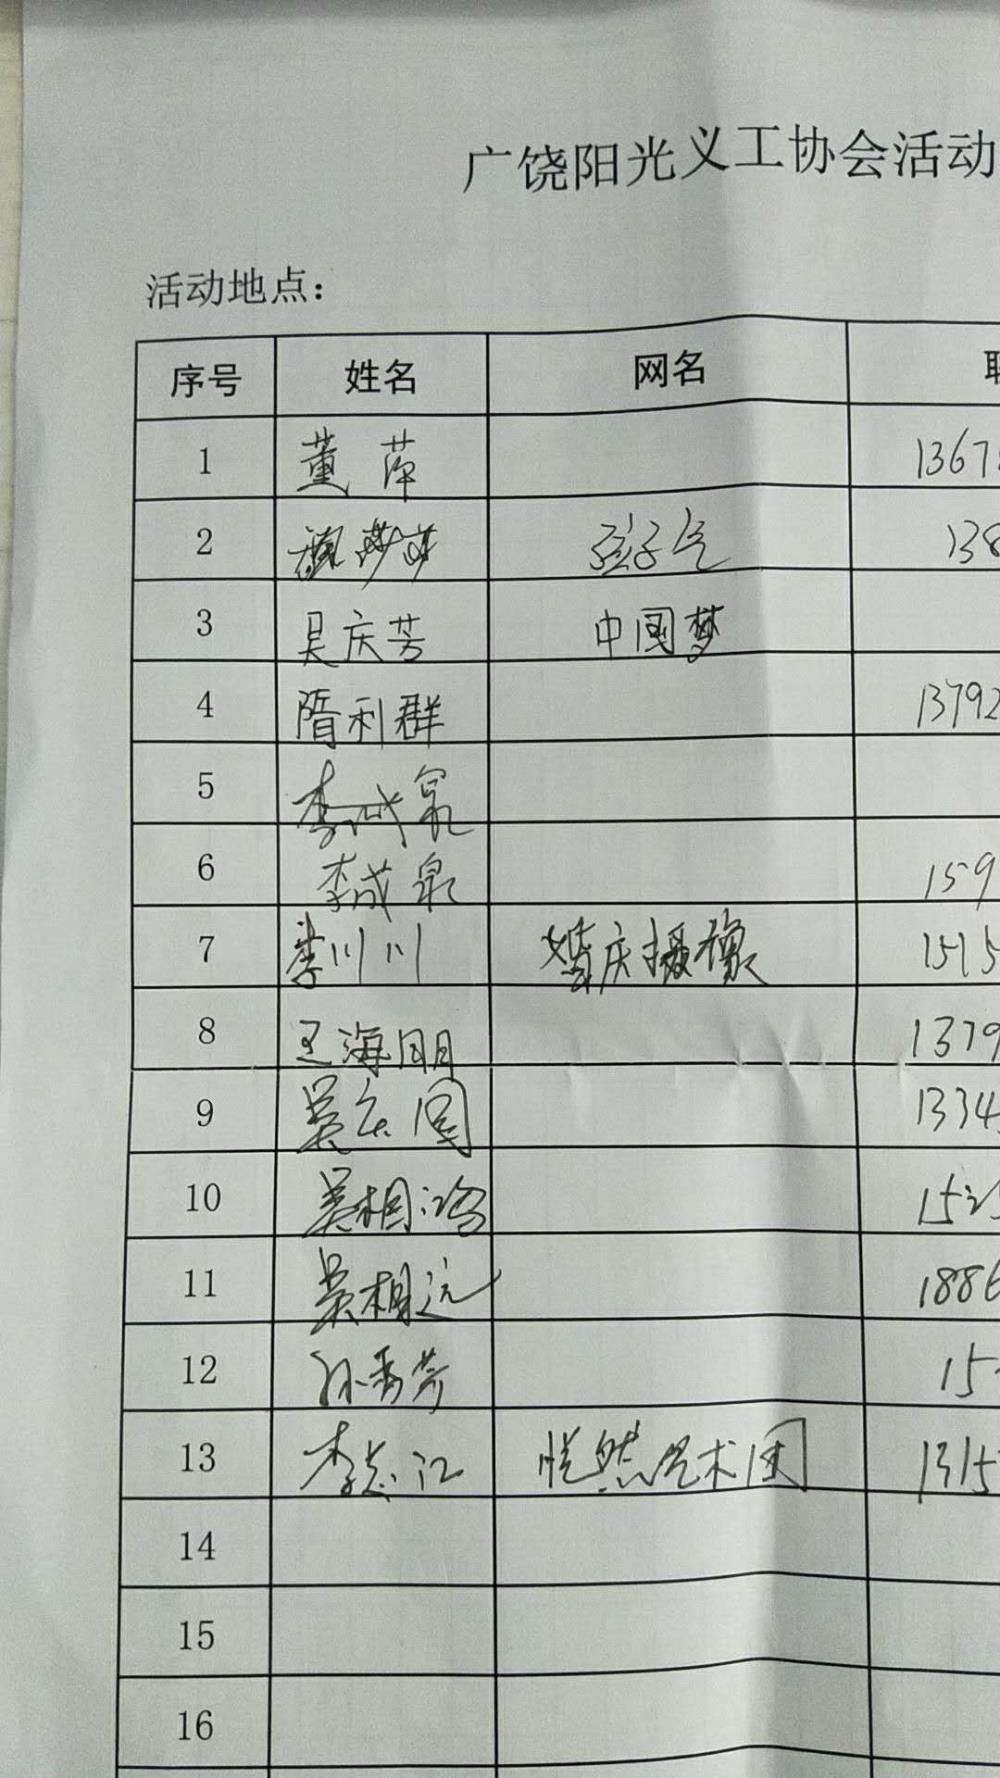 广饶阳光义工协会活动
活动地点：
序号 姓名 网名
1 董萍 1367
2 莎莎 138
3 吴庆芳 中国梦
4 隋利群 13792
5 李成泉
6 李成泉 159
7 李川川 婚庆摄像 1515
8 王海朋 1379
9 吴庆国 1334
10 吴相 152
11 吴相远 1886
12 孙秀芳 15
13 李志江 悦然艺术团 1315
14
15
16